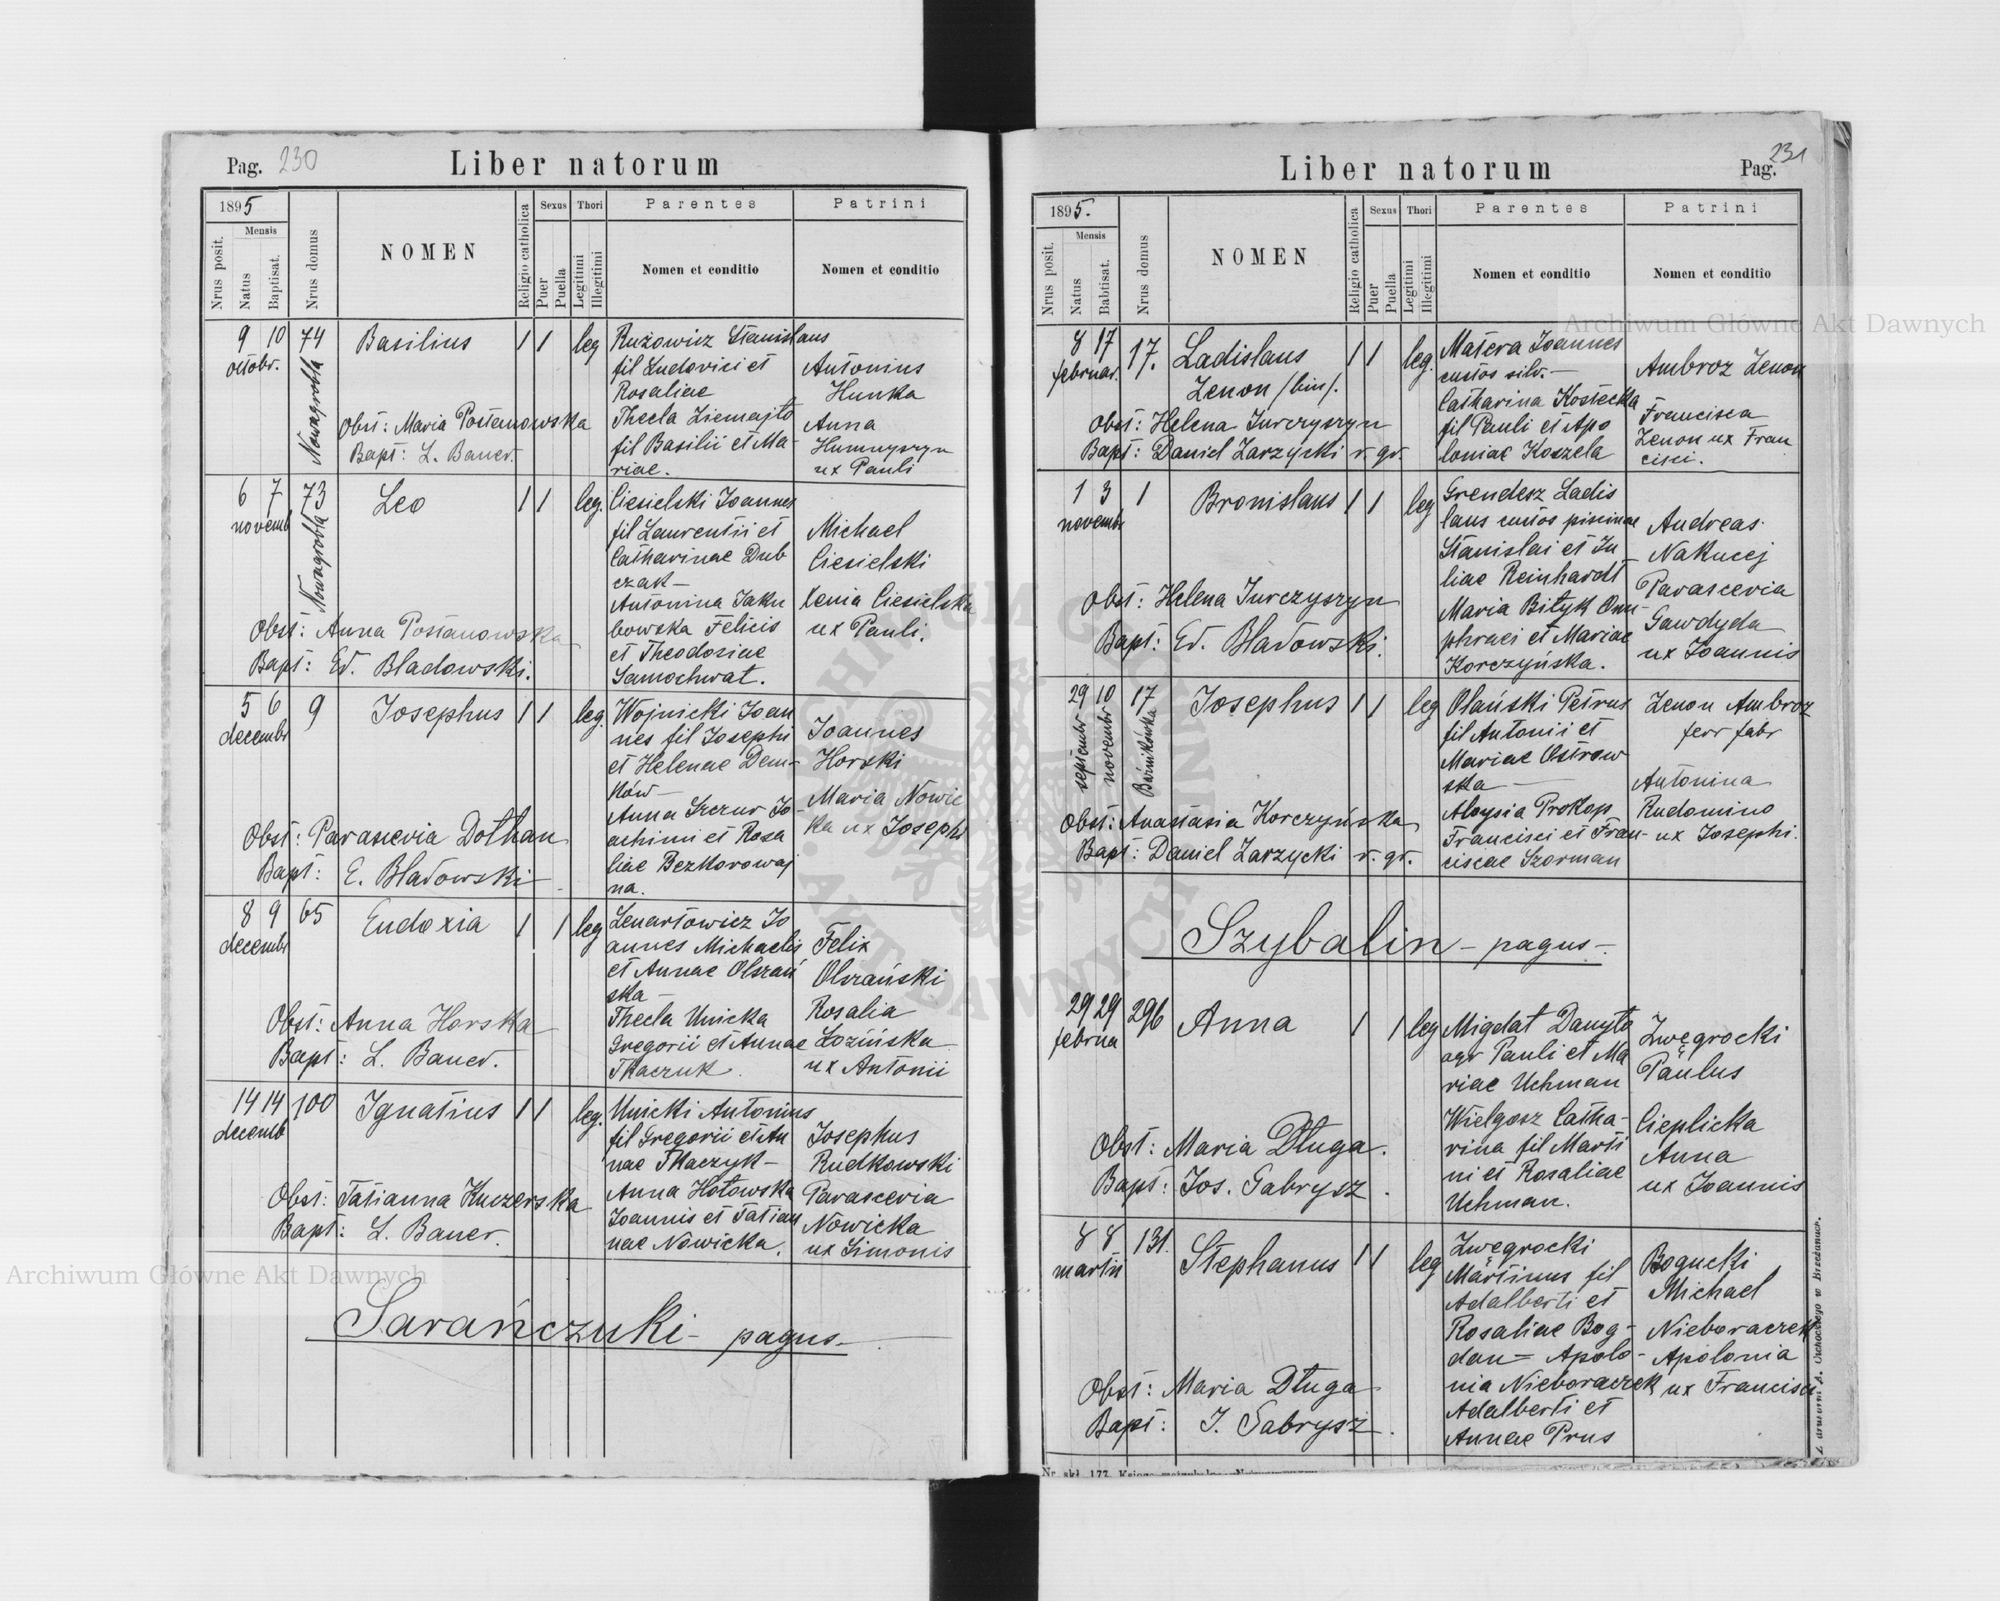 Pag. 230
Liber natorum
1895
Nrus posit.
Mensis
Natus
Baptisat.
Nrus domus
NOMEN
Religio catholica
Sexus
Puer
Puella
Thori
Legitimi
Illegitimi
Parentes
Nomen et conditio
Patrini
Nomen et conditio
9 10 74 Basilius 1 1 leg Rużowicz Stanislaus
octobr.
Nowagrobla
fil Ludovici et
Rosaliae
Thecla Ziemajto
fil Basilii et Ma-
riae.
Antonius
Hunka
Anna
Humnyszyn
ux Pauli
Obst: Maria Postanowska
Bapt: L. Bauer.
6 7 73 Leo 1 1 leg. Ciesielski Joannes
novemb
Nowagrobla
fil Laurentii et
Catharinae Dub
czak -
Antonina Jaku
bowska Felicis
et Theodosiae
Samochwat.
Michael
Ciesielski
Xenia Ciesielska
ux Pauli.
Obst: Anna Postanowska
Bapt: Ed. Bladowski.
5 6 9 Josephus 1 1 leg. Wojnicki Joan
decembr
nes fil Josephi
et Helenae Dem-
ków -
Anna Szczur Jo-
achimi et Rosa
liae Bezkorowaj
na.
Joannes
Horski
Maria Nowic
ka ux Josephi
Obst: Parascevia Dothan
Bapt: E. Bladowski
8 9 65 Eudoxia 1 1 leg Lenartowicz Jo
decembr
annes Michaelis
et Annae Olszań
ska -
Thecla Unicka
Gregorii et Annae
Tkaczuk.
Felix
Olszański
Rosalia
Łozińska
ux Antonii
Obst: Anna Horska
Bapt: L. Bauer.
14 14 100 Ignatius 1 1 leg. Unicki Antonius
decemb
fil Gregorii et An
nae Tkaczyk -
Anna Hołowska
Joannis et Tatian
nae Nowicka.
Josephus
Rudkowski
Parascevia
Nowicka
ux Simonis
Obst: Tatianna Kuczerska
Bapt: L. Bauer.
Sarańczuki - pagus -
Liber natorum
Pag. 231
1895.
Nrus posit.
Mensis
Natus
Babtisat.
Nrus domus
NOMEN
Religio catholica
Sexus
Puer
Puella
Thori
Legitimi
Illegitimi
Parentes
Nomen et conditio
Patrini
Nomen et conditio
8 17 17. Ladislaus 1 1 leg. Matera Joannes
februar.
Zenon /bin/.
custos silv. -
Catharina Kostecka
fil Pauli et Apo
loniae Koszela
Ambroz Zenon
Francisca
Zenon ux Fran
cisci.
Obst: Helena Jurczyszyn
Bapt: Daniel Zarzycki r. gr.
1 3 1 Bronislaus 1 1 leg Grendesz Ladis
novembr
laus custos piscinae
Stanislai et Ju
liae Reinhardt
Maria Bityk Onu-
phraei et Mariae
Korczyńska.
Andreas
Nakucej
Parascevia
Gawdyda
ux Joannis
Obst: Helena Jurczyszyn
Bapt: Ed. Bladowski.
29 10 17 Josephus 1 1 leg Olański Petrus
septembr
novembr
fil Antonii et
Mariae Ostrow
ska -
Aloysia Prokop
Francisci et Fran-
ciscae Szorman
Zenon Ambroz
ferr fabr
Antonina
Rudomino
ux Josephi.
Obst: Anastasia Korczyńska
Bapt: Daniel Zarzycki r. gr.
Szybalin - pagus -
29 29 296 Anna 1 1 leg Migdat Danyto
februa
agr Pauli et Ma
riae Uchman
Wielgosz Catha-
rina fil Marti
ni et Rosaliae
Uchman.
Zwęgrocki
Paulus
Cieplicka
Anna
ux Joannis
Obst: Maria Długa.
Bapt: Jos. Gabrysz.
8 8 131. Stephanus 1 1 leg Zwęgrocki
martii
Martinus fil
Adalberti et
Rosaliae Bog-
dan = Apolo-
nia Nieboraczek
Adalberti et
Annae Prus
Bogucki
Michael
Nieboraczek
Apolonia
ux Francisci
Obst: Maria Długa
Bapt: J. Gabrysz.
Archiwum Główne Akt Dawnych
Archiwum Główne Akt Dawnych